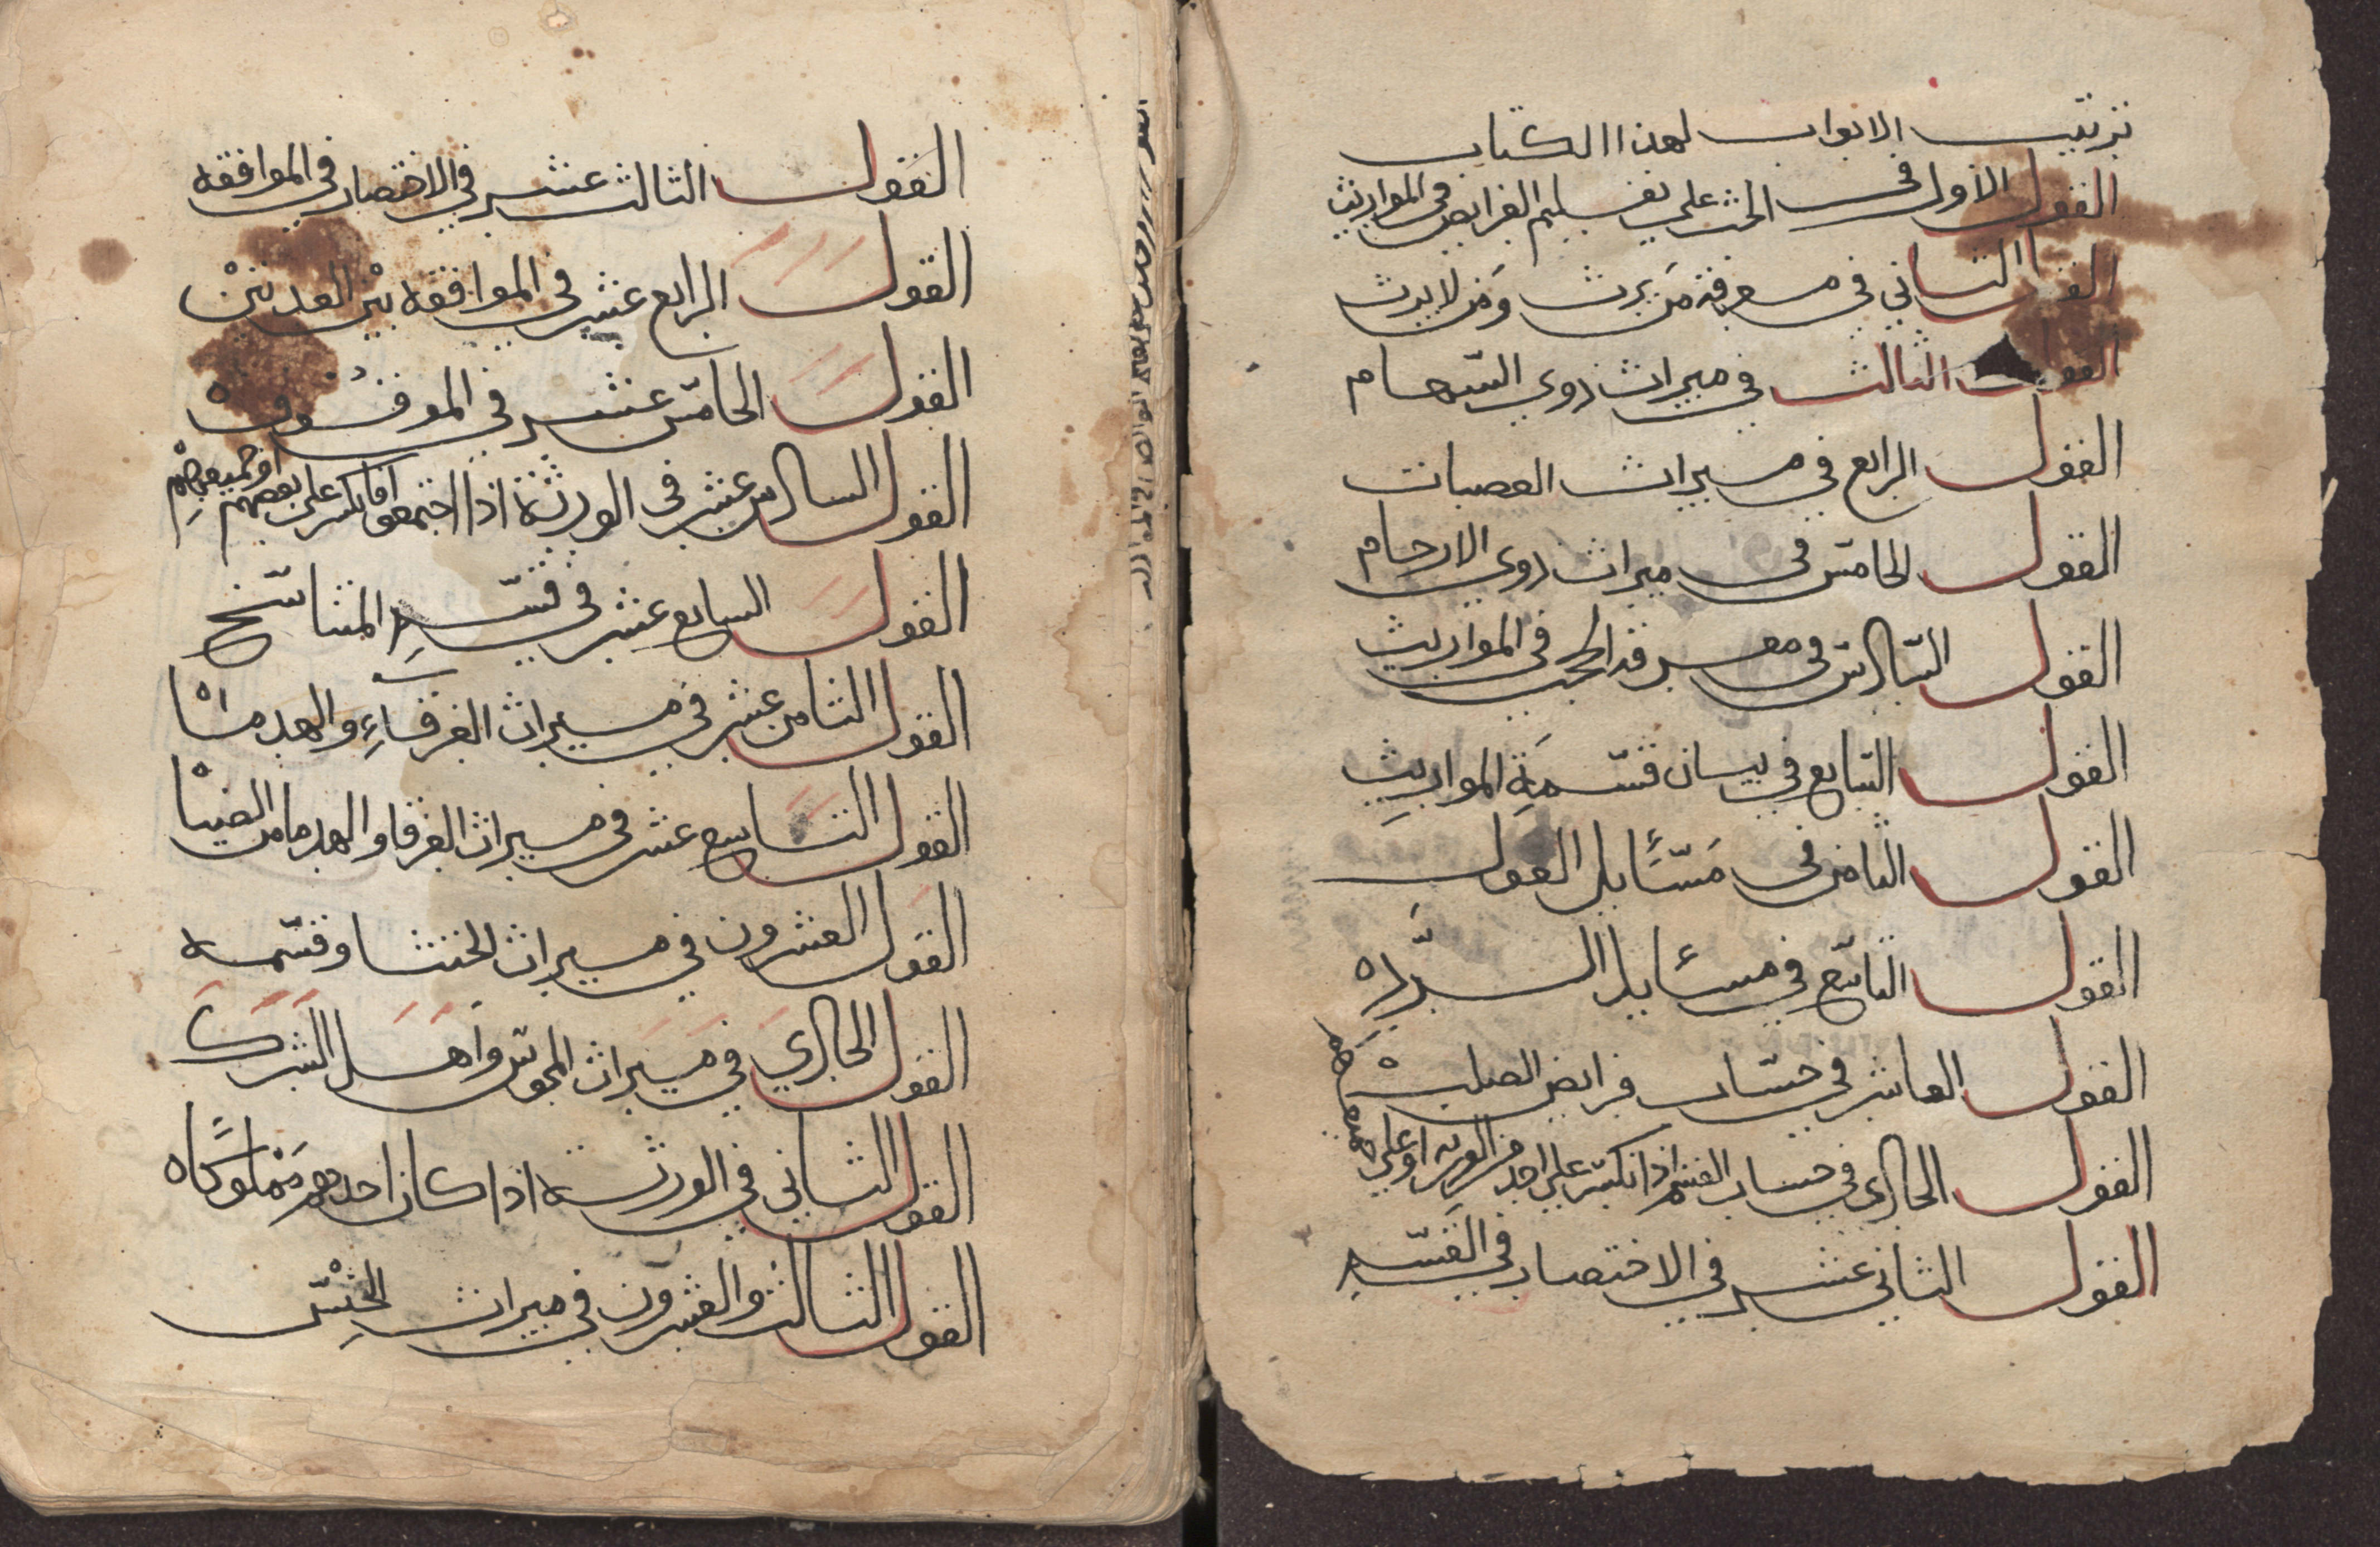 ترتيب الابواب لهذا الكتاب
القول الاول في الحث على تعليم الفرايض في المواريث
القول الثاني في معرفة من يرث ومن لا يرث
القول الثالث في ميراث ذوي السهام
القول الرابع في ميراث العصبات
القول الخامس في ميراث ذوي الارحام
القول السادس في معرفة الحجب في المواريث
القول السابع في بيان قسمة المواريث
القول الثامن في مسايل العول
القول التاسع في مسايل الرده
القول العاشر في حساب فرايض الصلب
القول الحادي في حساب القسم اذا انكسر على احد من الورثه او على جميعهم
القول الثاني عشر في الاختصار في القسم
القول الثالث عشر في الاختصار في الموافقه
القول الرابع عشر في الموافقه بين العددين
القول الخامس عشر في الموقوف
القول السادس عشر في الورثة اذا اجتمعوا فانكسر على بعضهم او جميعهم
القول السابع عشر في قسم المتناسخ
القول الثامن عشر في ميراث الغرقاء والهدما
القول التاسع عشر في ميراث الغرقا والهدما من
القول العشرون في ميراث الخنثا وقسمه
القول الحادي في ميراث المجوس واهل الشرك
القول الثاني في الورثة اذا كان احدهم مملوكاه
القول الثالث والعشرون في ميراث الجنس